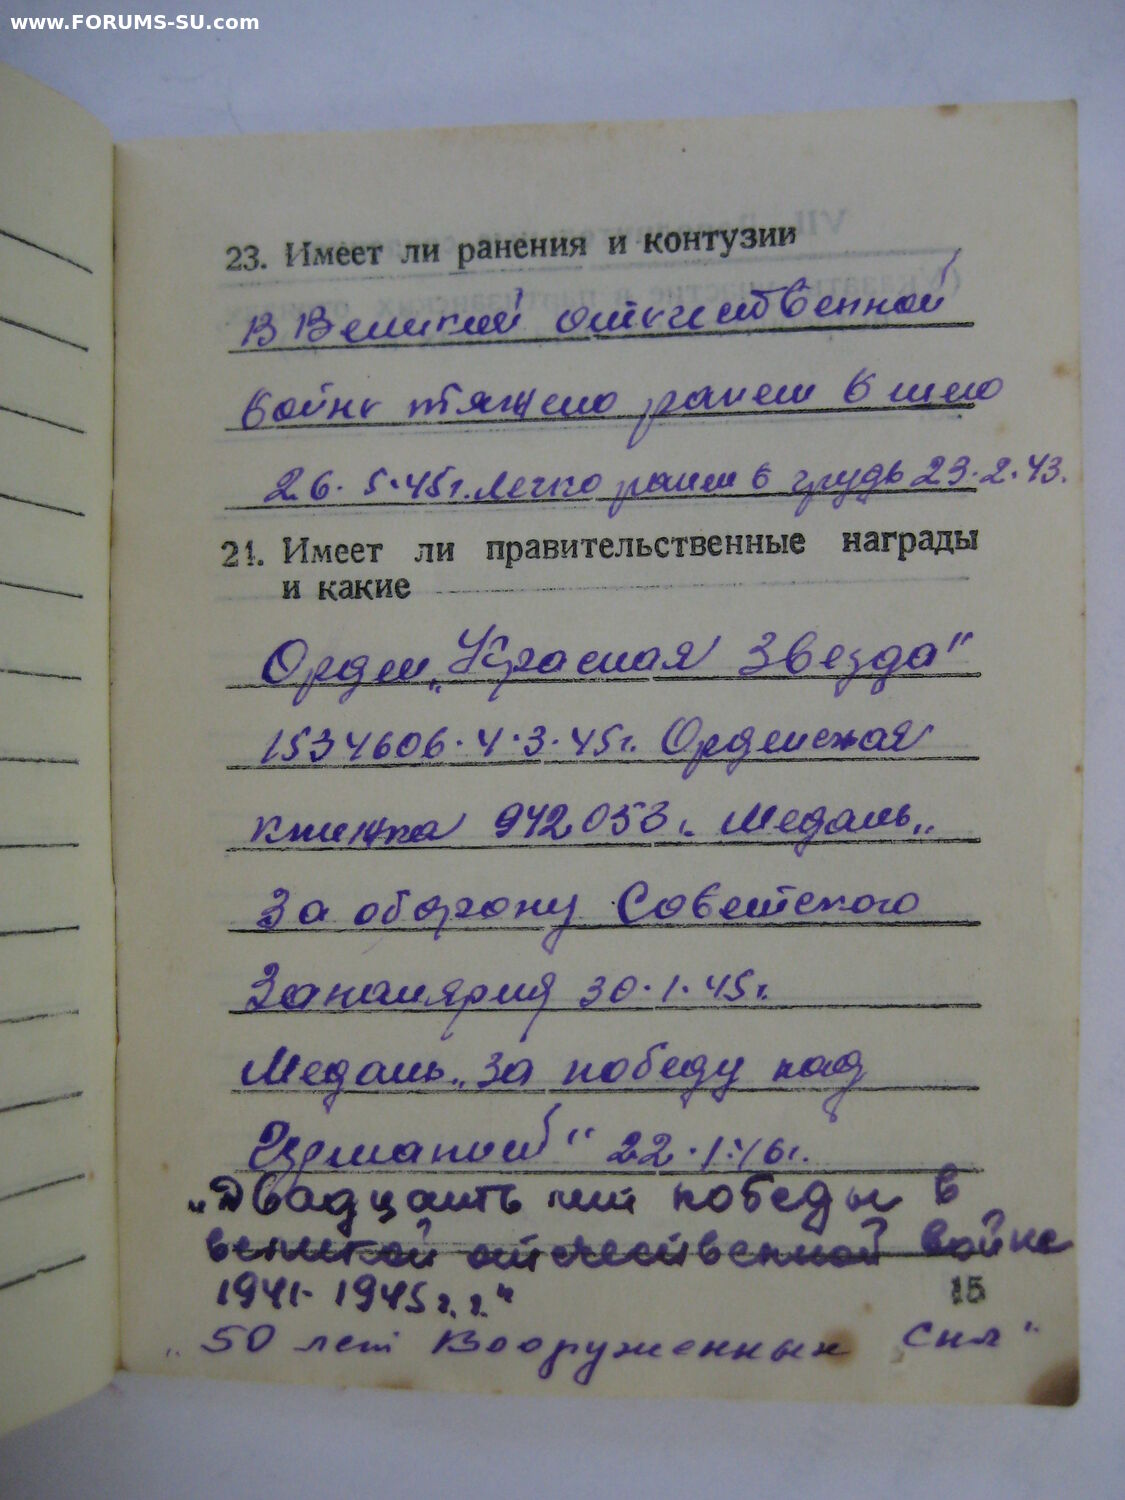 www.FORUMS-SU.com
23. Имеет ли ранения и контузии
В Великой отечественной
войне тяжело ранен в шею
26.5.45г. Легко ранен в грудь 23.2.43.
24. Имеет ли правительственные награды
и какие
Орден „Красная Звезда“
1534606. 4.3.45г. Орденская
книжка 942053. Медаль „
За оборону Советского
Заполярия 30.1.45г.
Медаль „За победу над
Германией“ 22.1.46г.
„Двадцать лет победы в
великой отечественной войне
1941-1945г.г.“
15
„50 лет Вооруженных Сил“